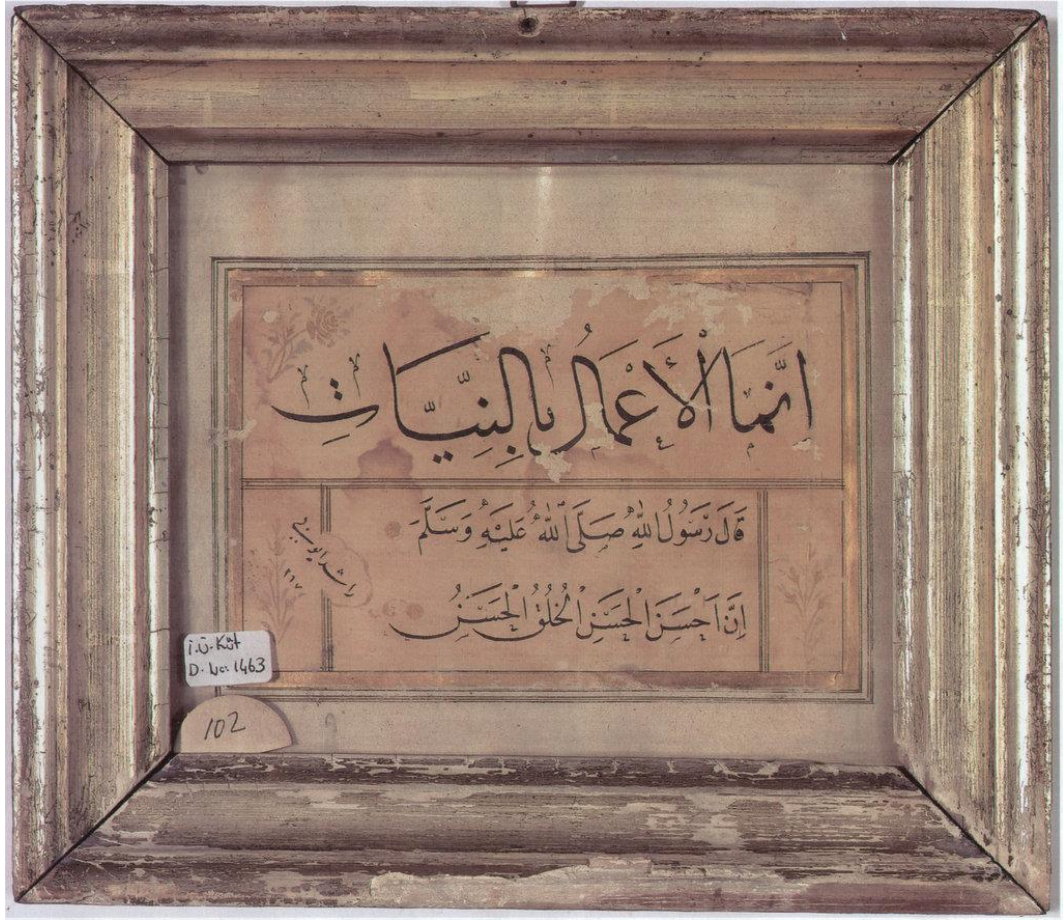 اِنَّمَا الْاَعْمَالُ بِالنِّيَّاتِ
قَالَ رَسُولُ اللهِ صَلَّى اللهُ عَلَيْهِ وَسَلَّمَ
اِنَّ اَحْسَنَ الْحَسَنِ الْخُلُقُ الْحَسَنُ
İ.Ü. Küt
D. No: 1463
102